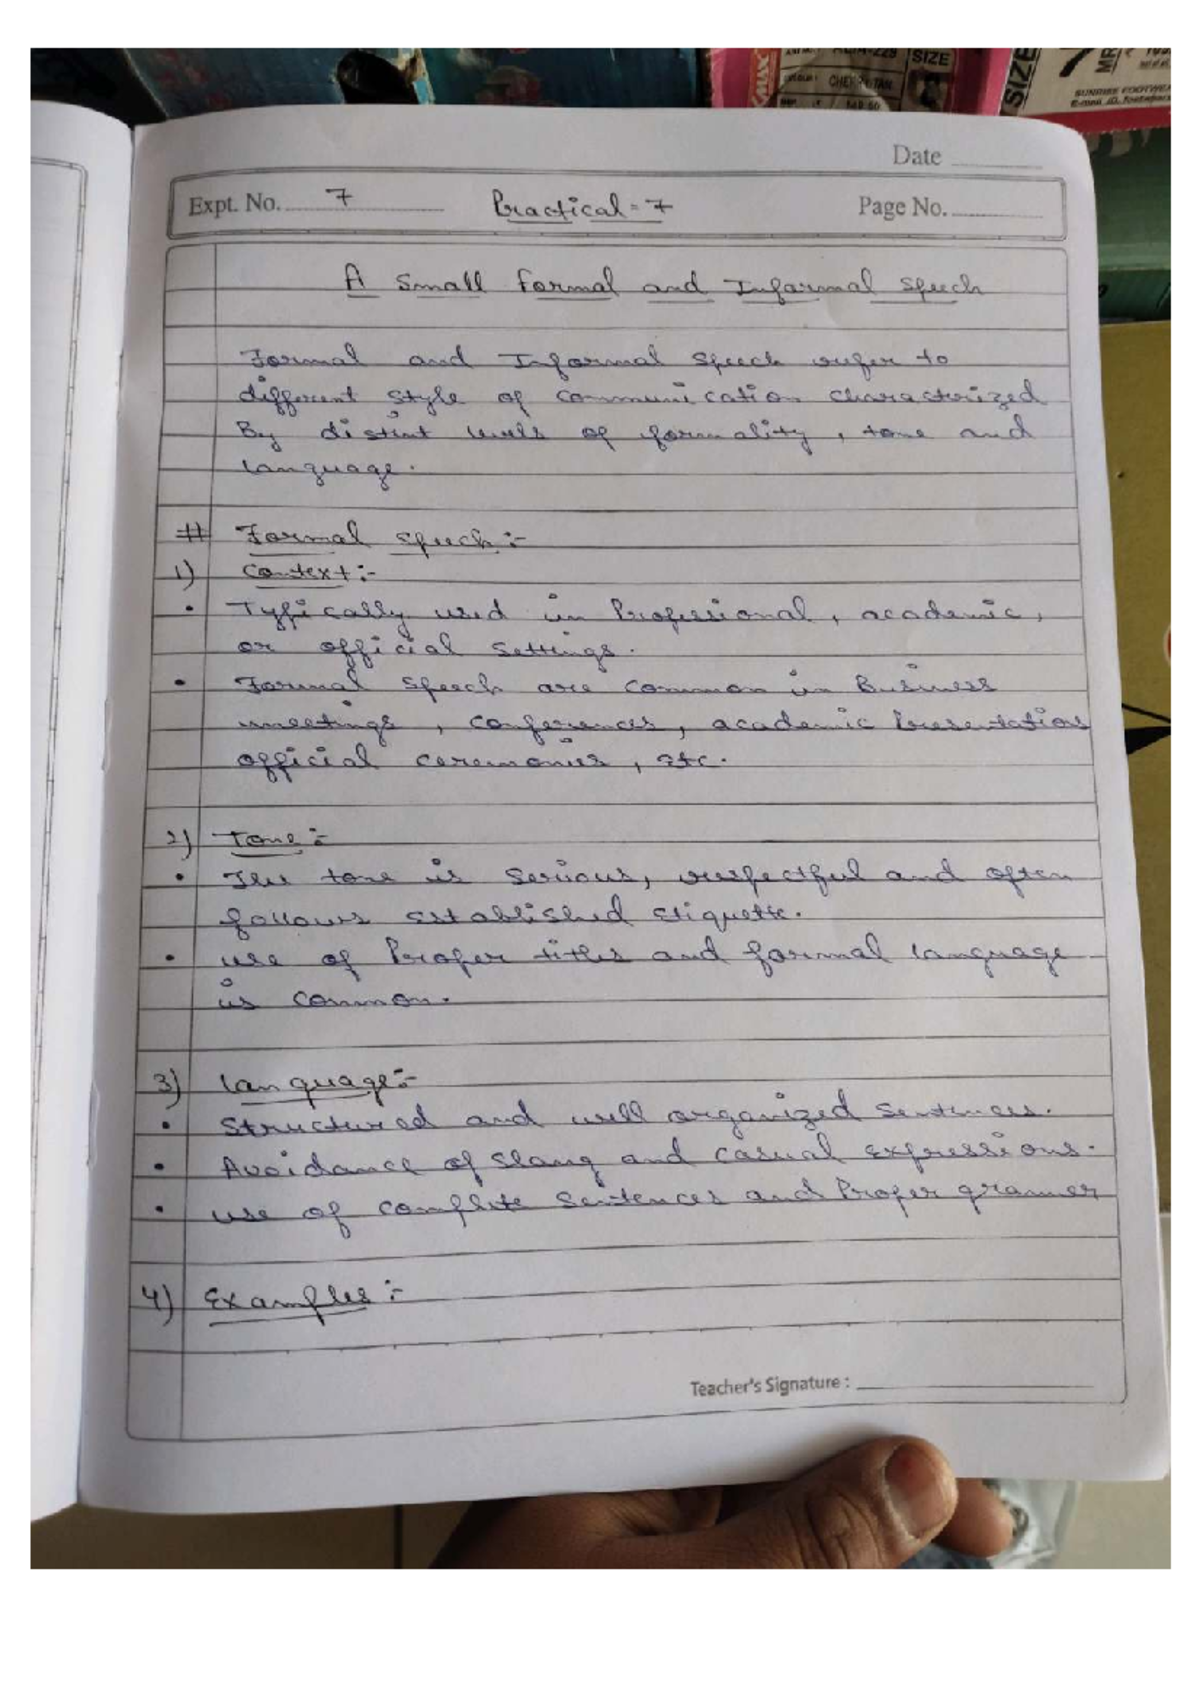 SIZE
CHERRY/TAN
SIZE
MR
SUNRISE FOOTWE
Date
Expt. No. 7 Practical = 7 Page No.
A Small Formal and Informal Speech
Formal and Informal Speech refer to
different style of communication characterized
By distint levels of formality, tone and
language.
# Formal speech :-
1) Context :-
• Typically used in Professional, academic,
or official settings.
• Formal Speech are common in Business
meetings, conferences, academic Presentation
official ceremonies, etc.
2) Tone :-
• The tone is serious, respectful and often
follows established etiquette.
• use of Proper titles and formal language
is common.
3) language :-
• Structured and well organized sentences.
• Avoidance of slang and casual expressions.
• use of complete sentences and Proper gramer
4) Examples :-
Teacher's Signature :